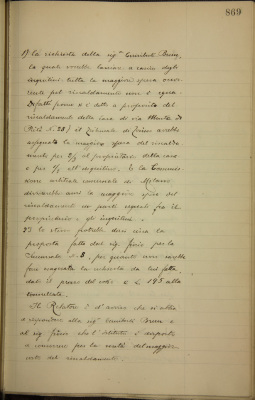 869
1) la richiesta della sig.ra Trombetti Bruni,
la quale vorrebbe lasciare a carico degli
inquilini tutta la maggiore spesa occor-
rente pel riscaldamento non è equa.
Difatti come si è detto a proposito del
riscaldamento della casa di via
(N. 28) il Tribunale di Torino avrebbe
la maggiore spesa del riscalda-
mento per 2/3 al proprietario della casa
e per 1/3 all'inquilino. E la Commis-
sione arbitrale comunale di Milano
dividerebbe anzi la maggiore spesa del
riscaldamento in parti eguali fra il
proprietario e gli inquilini.
2) lo stesso potrebbe dirsi circa la
proposta fatta dal sig. per la
N. 8, per quanto non risulti
bene la richiesta da lui fatta
dato il prezzo del coke a L. 195 alla
tonnellata.
Il Relatore è d'avviso che si abbia
a rispondere alla sig.ra Trombetti Bruni e
al sig. che l'Istituto è disposto
a concorrere per la metà del maggior
costo del riscaldamento.